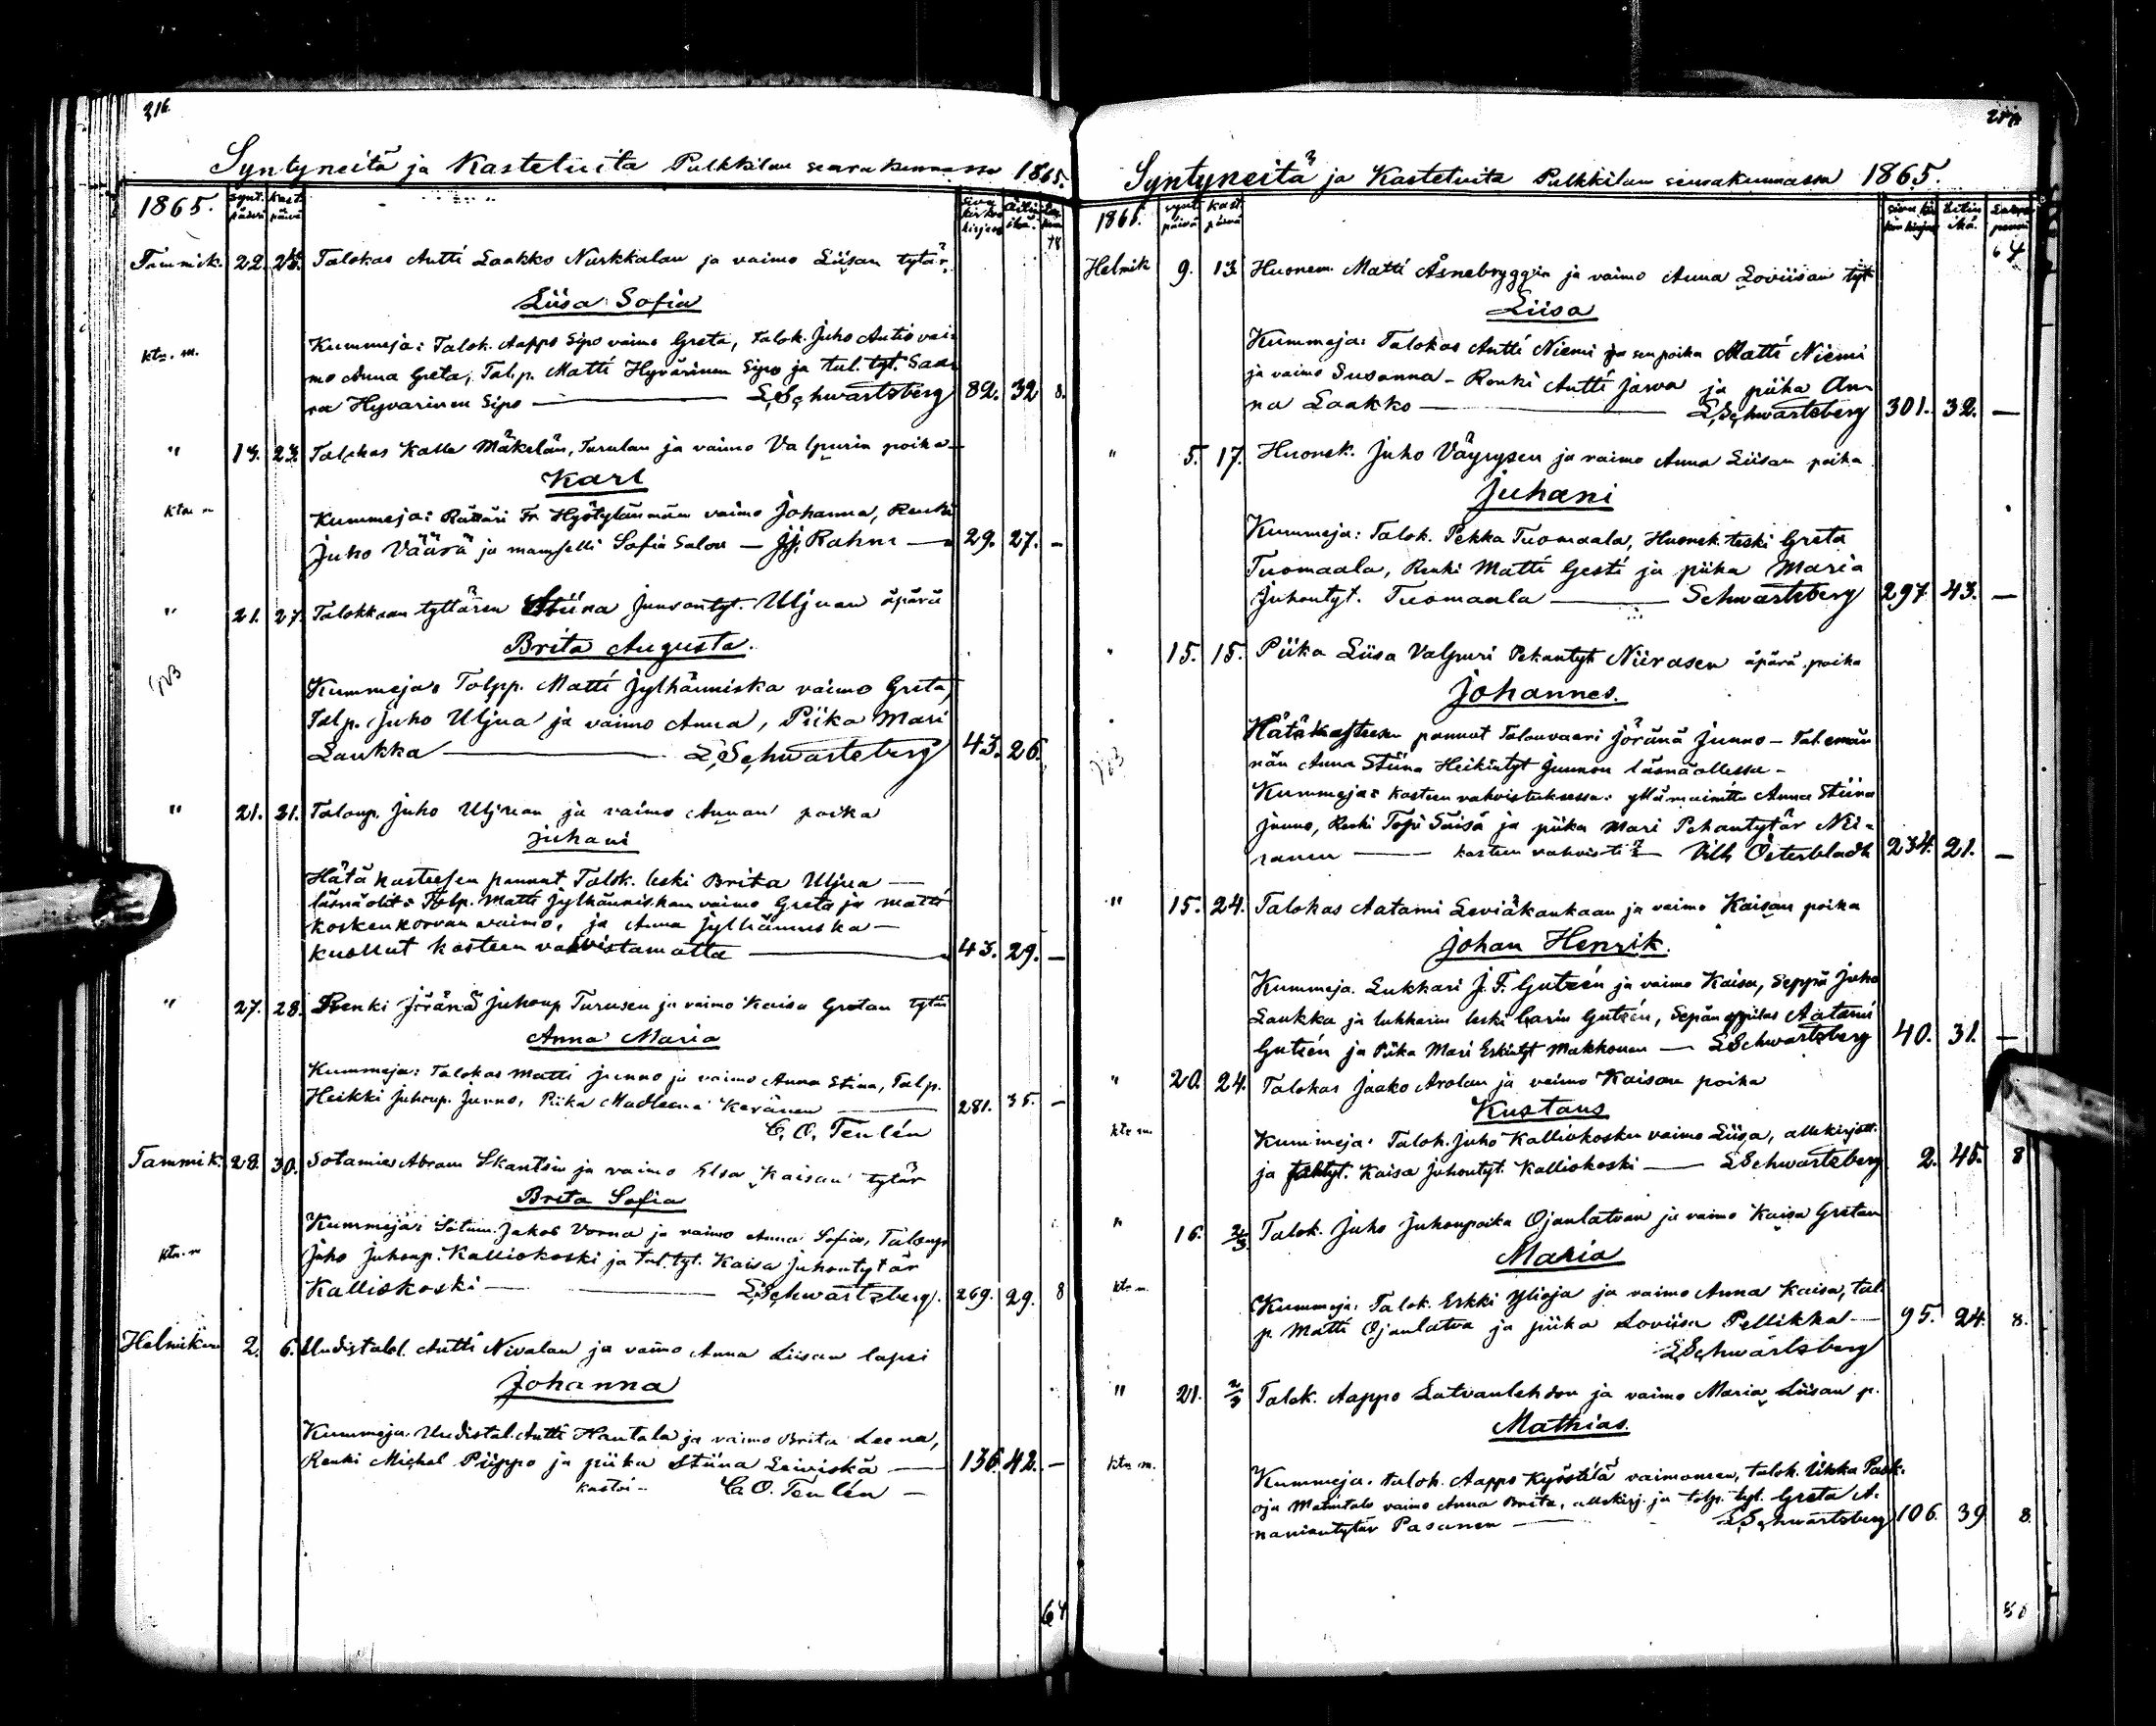 216
Syntyneitä ja Kastetuita Pulkkilan seurakunnassa 1865.
1865. synt. päivä kast. päivä sivu kirkon kirjassa äitin ikä.
Tammik. 22. 25. Talokas Antti Laakko Nurkkalan ja vaimo Liisan tytär
Liisa Sofia
ktr. m. Kummeja: Talok. Aappo Sipo vaimo Greta, Talok. Juho Antio vai-
mo Anna Greta, Tal.p. Matti Hyvärinen Sipo ja tul. tyt. Saa-
ra Hyvarinen Sipo — L. Schwartsberg 82. 32 8.
" 13. 23. Talokas Kalle Mäkelän, Turulan ja vaimo Valpurin poika
Karl
Kummeja: Rättäri Fr. Hyötylänmäen vaimo Johanna, Renki
Juho Väärä ja mamselli Sofia Salon — J.J. Rahm — 29. 27. -
" 21. 27. Talokkaan tyttären Stiina Junsontyt. Uljuan äpärä
Brita Augusta.
Kummeja: Talpp. Matti Jylhänniska vaimo Greta,
Talp. Juho Uljua ja vaimo Anna, Piika Mari
Laukka — L. Schwartsberg 43. 26.
" 21. 31. Taloup. Juho Uljuan ja vaimo Annan poika
Juhani
Hätä kasteesen pannut Talok. leski Brita Uljua —
läsnäolit: Talp. Matti Jylhänniskan vaimo Greta ja Matti
Koskenkorvan vaimo, ja Anna Jylhänniska —
kuollut kasteen vahvistamatta — 43. 29. —
" 27. 28. Renki Jöränä Juhonp. Turusen ja vaimo Kaisa Gretan tytär
Anna Maria
Kummeja: Talokas Matti Junno ja vaimo Anna Stina, Talp.
Heikki Juhonp. Junno, Piika Madleena Keränen — 281. 35. -
C. O. Tenlén
Tammik. 28. 30. Sotamies Abram Skantsin ja vaimo Elsa Kaisan tytär
Brita Sofia
Kummeja: Sotam. Jakob Vorna ja vaimo Anna Sofia, Taloup.
Juho Juhonp. Kalliokoski ja tal. tyt. Kaisa Juhontytär
Kalliokoski — L. Schwartsberg. 269. 29. 8
Helmikuu 2. 6. Uudistalol. Antti Nivalan ja vaimo Anna Liisan lapsi
Johanna
Kummeja. Uudistal. Antti Hautala ja vaimo Brita Leena,
Renki Michel Piippo ja piika Stiina Leiviskä — 136. 42. —
kastoi — C. O. Tenlén —
64
Syntyneitä ja Kastetuita Pulkkilan seurakunnassa 1865.
1865. synt. päivä kast. päivä sivu kir kon kirjassa äitin ikä.
64
Helmik 9. 13. Huonem. Matti Åsnebryggin ja vaimo Anna Loviisan tyt
Liisa
Kummeja: Talokas Antti Niemi ja sen poika Matti Niemi
ja vaimo Susanna - Renki Antti Jarva ja piika An-
na Laakko — L. Schwartsberg 301. 32. —
" 5. 17. Huonek. Juho Väyrysen ja vaimo Anna Liisan poika
Juhani
Kummeja: Talok. Pekka Tuomaala, Huonek. leski Greta
Tuomaala, Renki Matti Gesti ja piika Maria
Juhontyt. Tuomaala — Schwartsberg 297. 43. —
15. 15. Piika Liisa Valpuri Pekantyt. Niirasen äpärä poika
Johannes.
Hätäkasteesen pannut Talonvaari Jöränä Junno - Tal. emän-
nän Anna Stiina Heikintyt Junnon läsnäollessa -
Kummeja: kasteen vahvistuksessa: yllämainittu Anna Stiina
Junno, Renki Topi Säisä ja piika Mari Pekantytär Nii-
ranen — kasteen vahvisti — Vilh Österbladh 234. 21. —
" 15. 24. Talokas Aatami Leviäkankaan ja vaimo Kaisan poika
Johan Henrik.
Kummeja. Lukkari J. F. Gutzén ja vaimo Kaisa, Seppä Juho
Laukka ja lukkarin leski Carin Gutzén, Sepän oppilas Aatami
Gutzén ja Piika Mari Erkintyt Makkonen — L. Schwartsberg 40. 31. —
" 20. 24. Talokas Jaako Arolan ja vaimo Kaisan poika
Kustaus
ktr m. Kummeja: Talok. Juho Kalliokosken vaimo Liisa, allekirjott.
ja taltyt. Kaisa Juhontyt. Kalliokoski — L. Schwartsberg 2. 45. 8
" 16. 2/3. Talok. Juho Juhonpoika Ojanlatvan ja vaimo Kaisa Gretan
Maria
Kummeja: Talok. Erkki Ylioja ja vaimo Anna Kaisa, tal.
p. Matti Ojanlatva ja piika Loviisa Pellikka — 95. 24. 8.
L. Schwartsberg
" 21. 2/3 Talok. Aappo Latvanlehdon ja vaimo Maria Liisan p.
Mathias.
ktr m. Kummeja. talok. Aappo Kyöstilä vaimonsa, talok. Iikka Pack-
oja Matintalo vaimo Anna Brita, allekirj. ja talp. tyt. Greta A-
naniantytär Pasanen — L. Schwartsberg 106. 39 8.